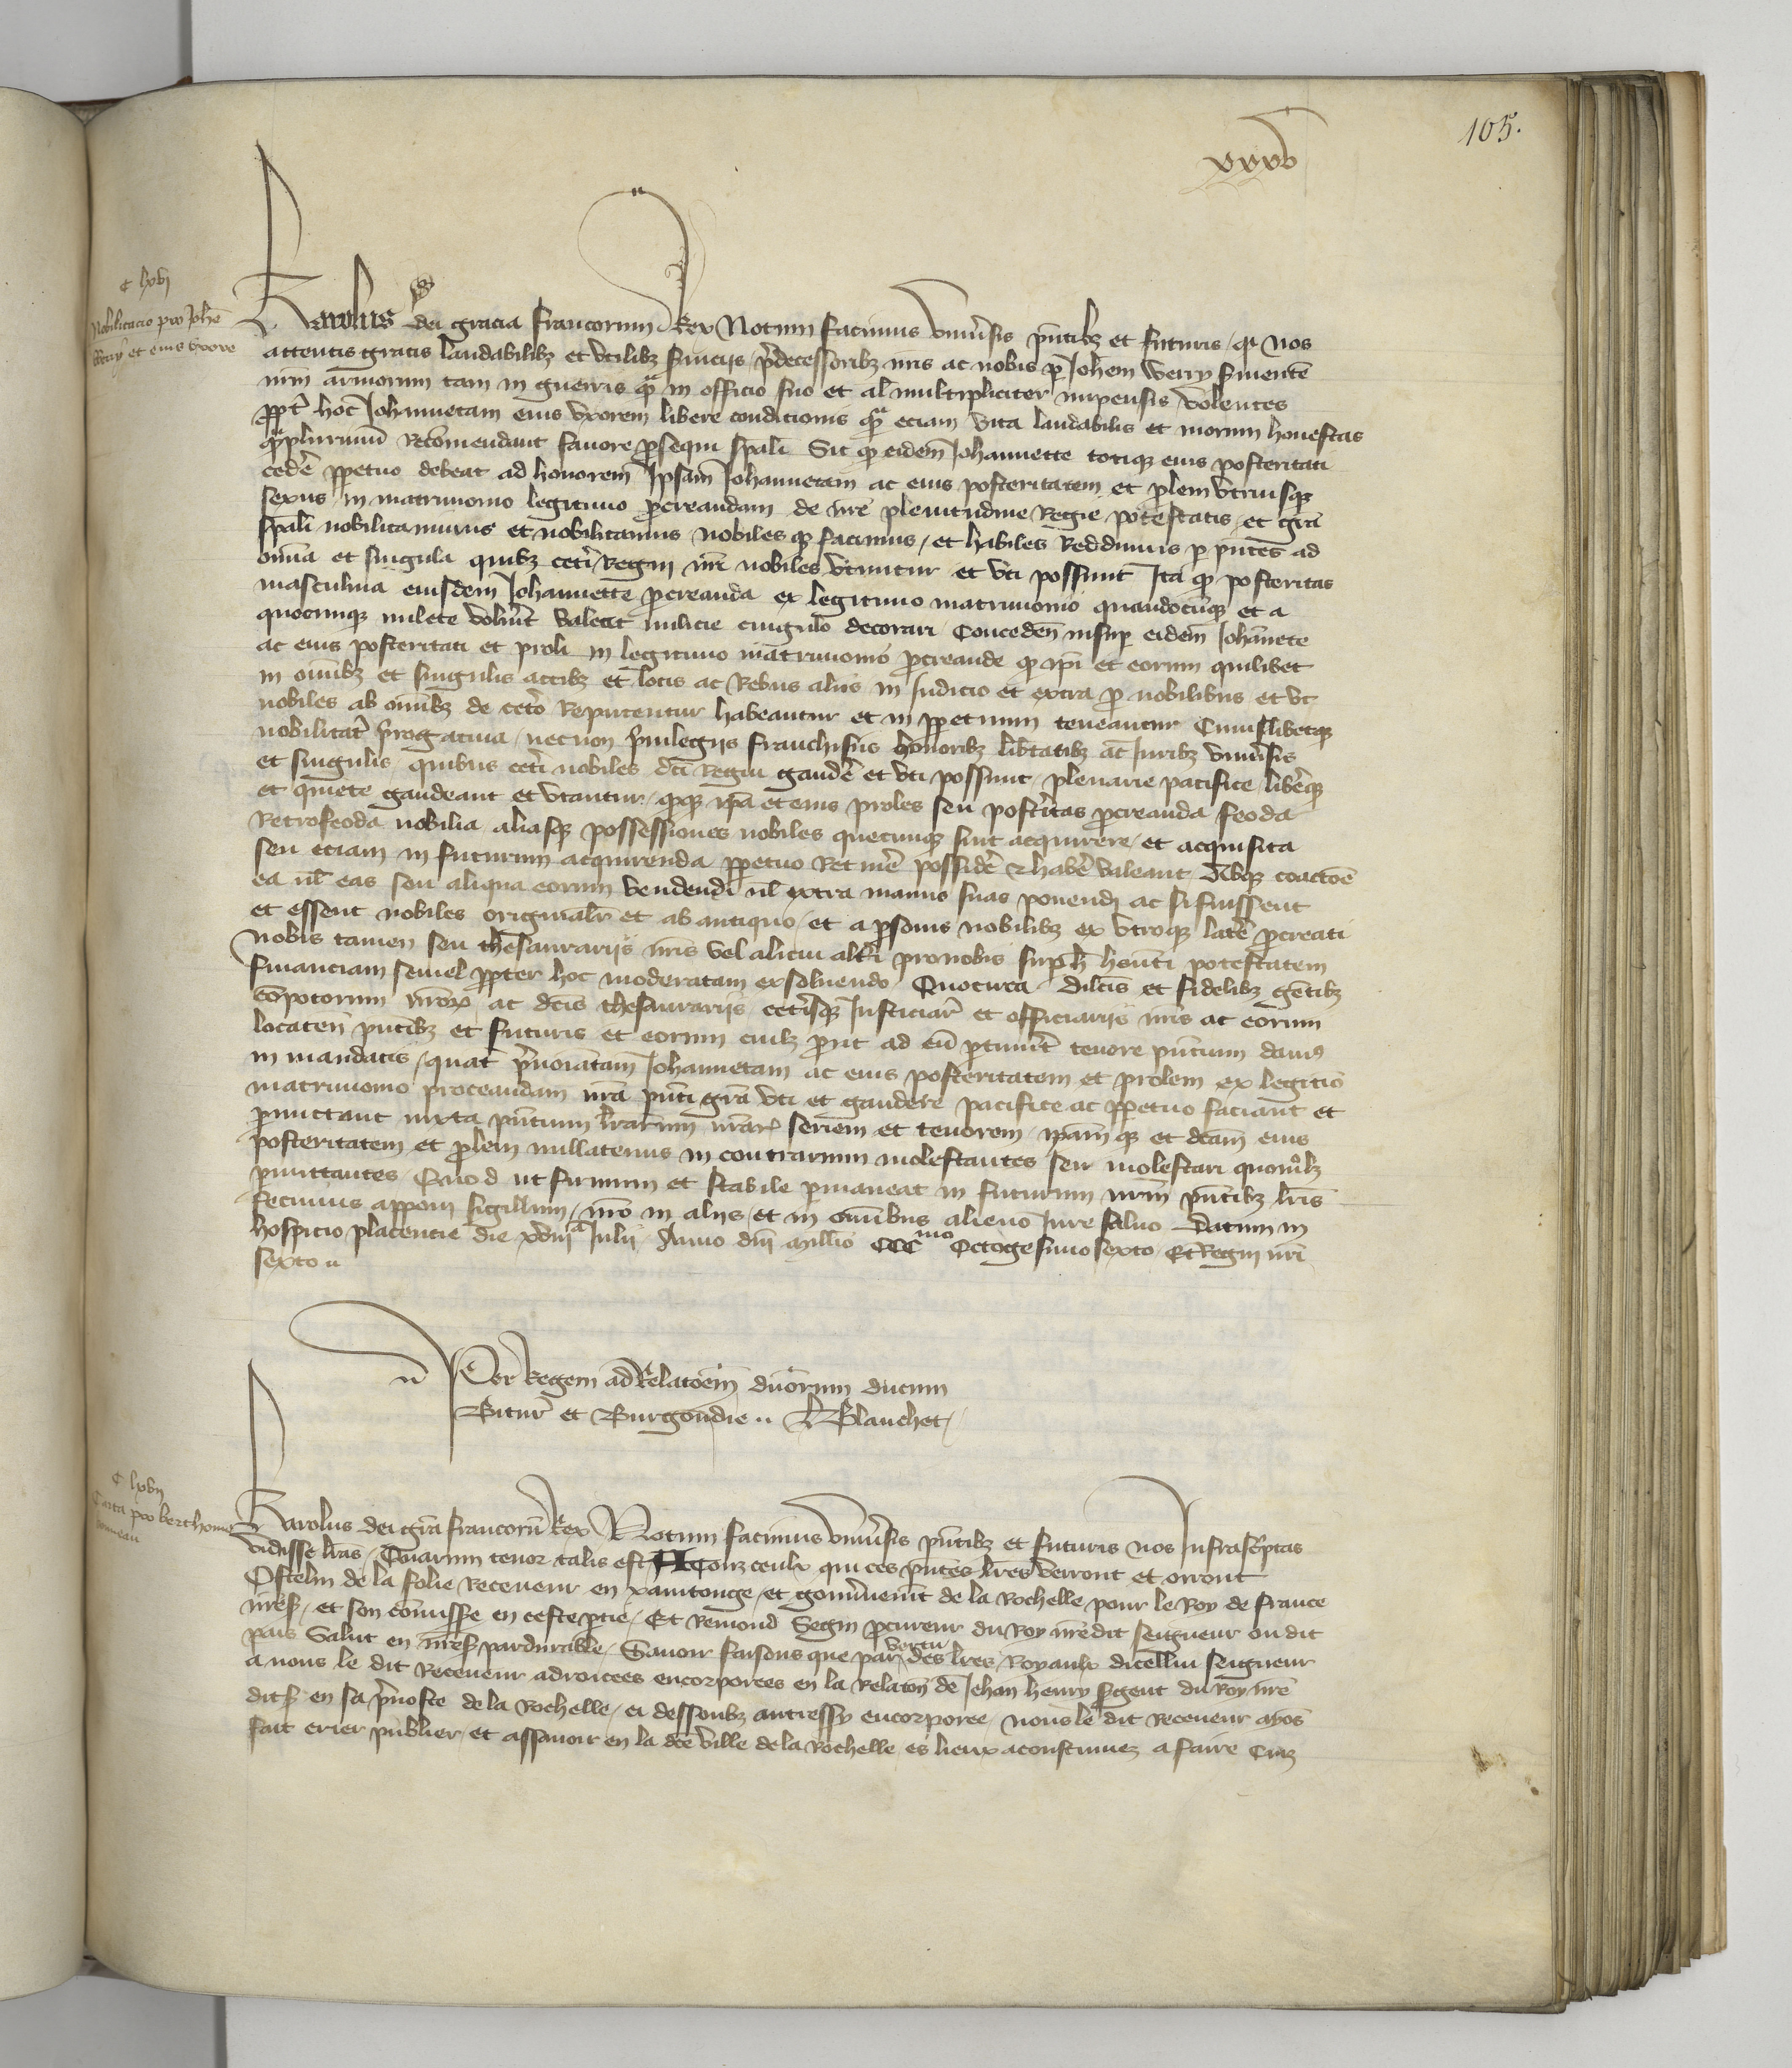 105.
xxxv
c lxvj
Nobilitacio pro Johe
Werry et eius uxore
Karolus dei gracia Francorum Rex Notum facimus universis pntibz et futuris / qd nos
attentis gratis laudabilibz et utilibz serviciis / predecessoribz nris ac nobis p Johem Werry servientē
nrm armorum tam in guerris q in officio suo et al multipliciter impensis volentes
ppt hoc Johannetam eius uxorem libere condicionis qm eciam vita laudabilis et morum honestas
qplurimū Recomendant favore psequi spali Sic q eidem Johannette totique eius posteritati
cedē ppetuo debeat ad honorem Ipsam Johannetam ac eius posteritatem et plem utriusque
sexus in matrimonio legitimo pcreandam de nre plenitudine Regie potestatis / et gra
spali nobilitamus et nobilitamus nobiles q facimus / et habiles Reddimus p pntes ad
omia et singula quibz ceteri Regni nri nobiles utuntur et uti possunt Ita q posteritas
masculina eiusdem Johannette pcreanda ex legitimo matrimonio quandocūque et a
quocumque milete voluerit valeat milicie cingulo decorari Conceden insup eidem Johannete
ac eius posteritati et proli in legitimo matrimonio pcreande q ipi et eorum quilibet
in omibz et singulis actibz et locis ac Rebus aliis in Judicio et extra p nobilibus et ut
nobiles ab omibz de cetero Reputentur habeantur et in ppetuum teneantur Cuiuslibetque
nobilitat prerogativa / necnon privilegiis franchisiis honoribz libtatibz ac Juribz universis
et singulis / quibus ceteri nobiles dci Regni gaudē et uti possunt / plenarie pacifice / liberēque
et quiete gaudeant et utantur / q ipa et eius proles seu posteritas pcreanda feoda
Retrofeoda nobilia aliasque possessiones nobiles quecumque sint acquirere / et acquisita
seu eciam in futurum acquirenda ppetuo Retinē possidē & habē valeant absque coactoē
ea ul eas seu aliqua eorum vendendi ul extra manus suas ponendi ac si fuissent
et essent nobiles originalr et ab antiquo / et a psonis nobilibz ex utroque latē pcreati
nobis tamen seu thesaurariis nris vel alicui alteri pro nobis sup h henti potestatem
financiam semel ppter hoc moderatam exsolvendo Quocirca dilcis et fidelibz gentibz
compotorum nrorum ac dcis thesaurariis ceterisque Justiciar et officiariis nris ac eorum
locaten pntibz et futuris et eorum cuilz prout ad eū ptinuerit tenore pntium damus
in mandatis / quat prenoiatam Johannetam ac eius posteritatem et prolem ex legitio
matrimonio proceandam nra pnti gra uti et gaudere pacifice ac ppetuo faciant et
pmittant iuxta pntium lrarum nrar seriem et tenorem / ipamque et dcam eius
posteritatem et plem nullatenus in contrarium molestantes seu molestari quomolz
pmittantes Quod ut firmum et stabile pmaneat in futurum nrm pntibz lris
fecimus apponi sigillum / nro in aliis / et in omibus alieno Jure salvo Datum in
hospicio placencie die xviija Julii Anno dni millio CCCmo Octogesimo sexto Et Regni nri
sexto
Per Regem ad Relatoem dnorum ducum
Bitur et Burgondie H Blanchet
c lxvij
Carta pro berthome
Karolus dei gra francorū Rex Notum facimus universis pntibz et futuris nos Infrascriptas
vidisse lras / Quarum tenor talis est A Touz ceulx qui ces pntes lres verront et orront
Ostelin de la folie Receveur en xanntonge / et gouvernemt de la Rochelle pour le Roy de France
nres / et son commisse en ceste ptie / Et Remond Segin pcureur du Roy nredit seigneur ou dit
pais Salut en nres pardurable / Savoir faisons que par vertu des lres Royaulx dicellui seigneur
a nous le dit Receveur adrecees encorporees en la Relaton de Jehan henry sgent du Roy nre
dits en sa prevoste de la Rochelle / ci dessoubz autressy encorporee / nous le dit Receveur avos
fait crier publier / et assavoir en la dce ville de la Rochelle es lieux acoustumez a faire criz